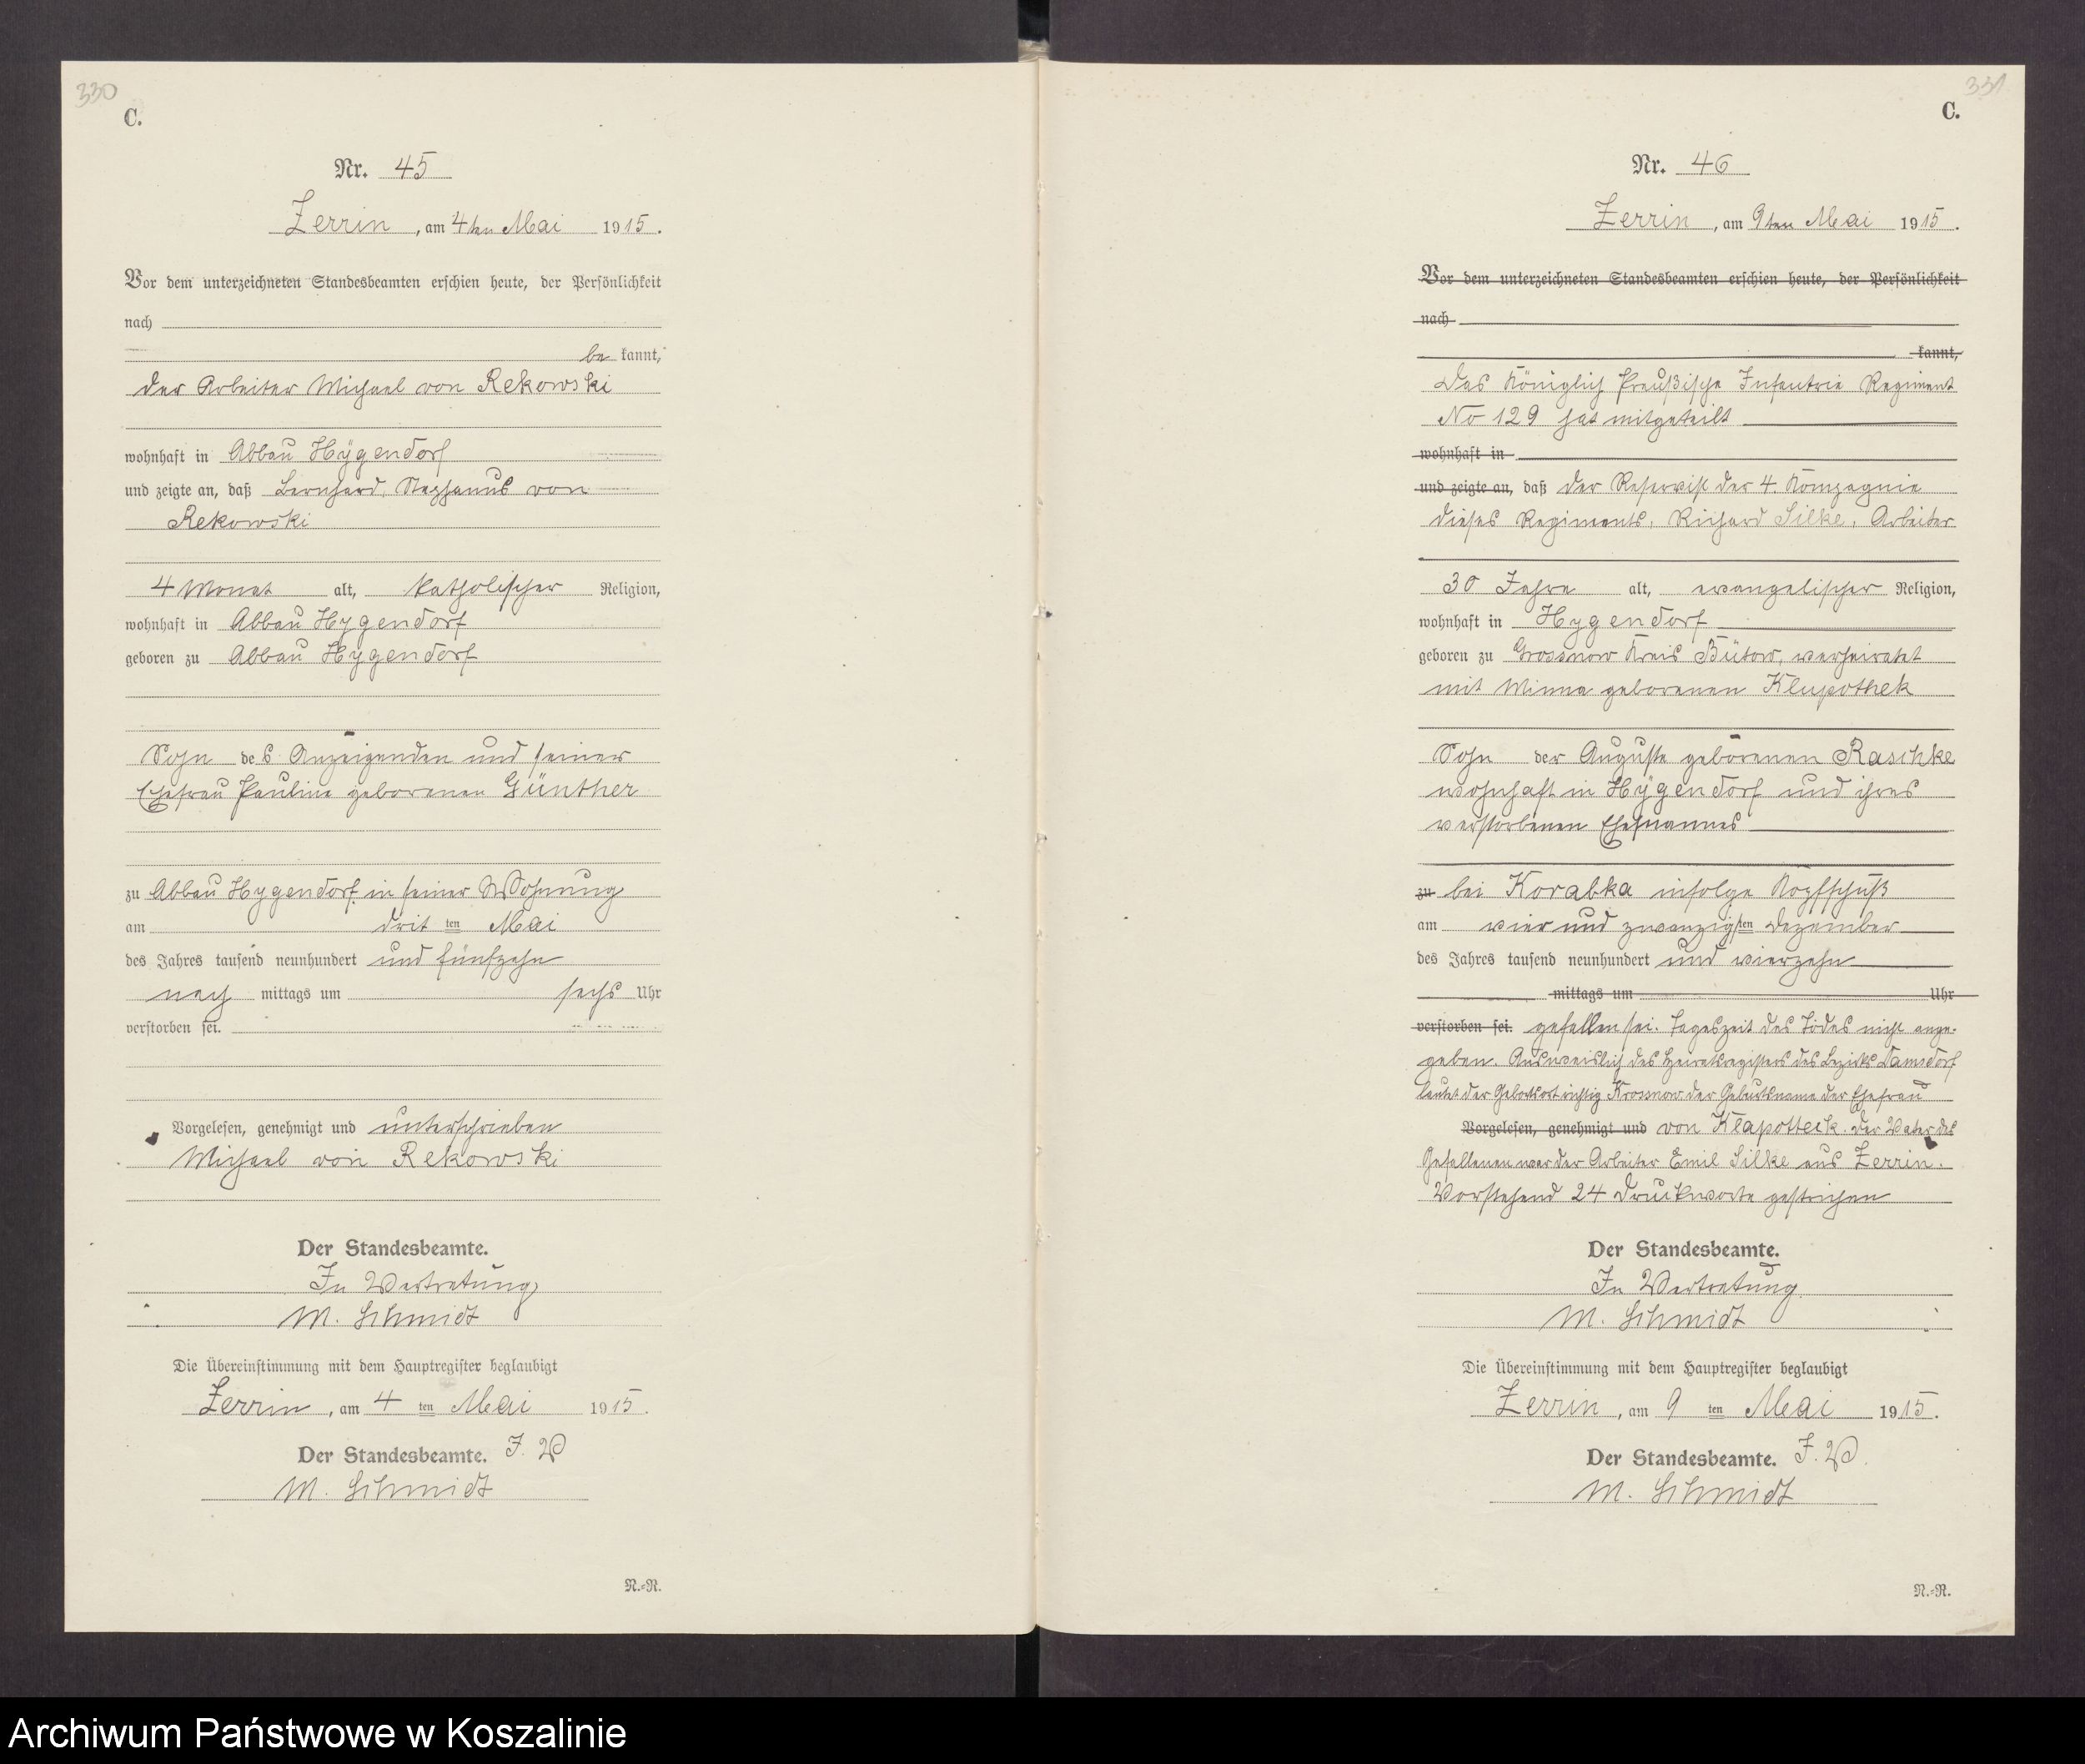 330
C.
Nr. 45
Zerrin, am 4ten Mai 1915.
Vor dem unterzeichneten Standesbeamten erschien heute, der Persönlichkeit
nach
be kannt,
der Arbeiter Michael von Rekowski
wohnhaft in Abbau Hygendorf
und zeigte an, daß Bernhard, Stephanus von
Rekowski
4 Monat alt, katholischer Religion,
wohnhaft in Abbau Hygendorf
geboren zu Abbau Hygendorf
Sohn des Anzeigenden und seiner
Ehefrau Pauline geborenen Günther
zu Abbau Hygendorf in seiner Wohnung
am drit ten Mai
des Jahres tausend neunhundert und fünfzehn
nach mittags um sechs Uhr
verstorben sei.
Vorgelesen, genehmigt und unterschrieben
Michael von Rekowski
Der Standesbeamte.
In Vertretung
M. Schmidt
Die Übereinstimmung mit dem Hauptregister beglaubigt
Zerrin, am 4 ten Mai 1915.
Der Standesbeamte. J. V
M. Schmidt
N.-R.
331
C.
Nr. 46
Zerrin, am 9ten Mai 1915.
Vor dem unterzeichneten Standesbeamten erschien heute, der Persönlichkeit
nach
kannt,
Das Königlich Preußische Infantrie Regiment
No 129 hat mitgeteilt
wohnhaft in
und zeigte an, daß der Reservist der 4. Kompagnie
dieses Regiments, Richard Silke, Arbeiter
30 Jahre alt, evangelischer Religion,
wohnhaft in Hygendorf
geboren zu Grossnow Kreis Bütow, verheiratet
mit Minna geborenen Klupothek
Sohn der Auguste geborenen Raschke
wohnhaft in Hygendorf und ihres
verstorbenen Ehemannes
zu bei Korabka infolge Kopfschuß
am vier und zwanzigsten Dezember
des Jahres tausend neunhundert und vierzehn
mittags um Uhr
verstorben sei. gefallen sei. Tageszeit des Todes nicht ange-
geben. Ausweislich des Heiratsregisters des Bezirks Damsdorf
lautet der Geburtsort richtig Krossnow der Geburtsname der Ehefrau
Vorgelesen, genehmigt und von Klapotteck. Der Vater des
Gefallenen war der Arbeiter Emil Silke aus Zerrin.
Vorstehend 24 Druckworte gestrichen
Der Standesbeamte.
In Vertretung
M. Schmidt
Die Übereinstimmung mit dem Hauptregister beglaubigt
Zerrin, am 9 ten Mai 1915.
Der Standesbeamte. J. V.
M. Schmidt
N.-R.
Archiwum Państwowe w Koszalinie